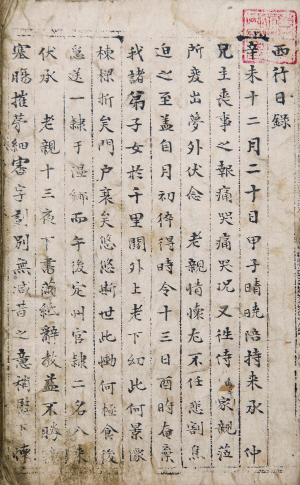 西行日録
辛未十二月二十日甲子晴曉陪持來承 仲
兄主喪事之報痛哭痛哭况又徃侍 家親莅
所变出夢外伏念 老親情懷尤不任悲割焦
迫之至盖自月初待得時令十三日酉時奄棄
我諸弟子女於千里関外上老下幼此何景像
棟樑折矣門戶衰矣悠悠斯世此慟何極食後
急送一隷于温鄉而午後定州官隷二名入来
伏承 老親十三夜下書滿紙辭教盖不勝
塞膓摧夢細害字劃別無減昔之意稍慰下懷